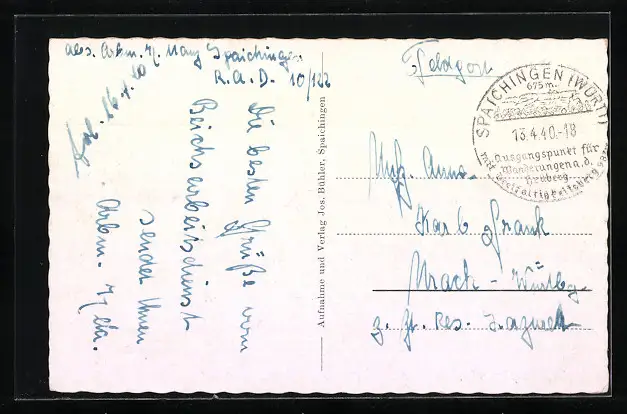 Abs. Arbm. H. Manz Spaichingen
R.A.D. 10/122
Die besten Grüße vom
Reichsarbeitsdienst
sendet Ihnen
Arbm.
Aufnahme und Verlag Jos. Bühler, Spaichingen
Feldpost
SPAICHINGEN (WÜRTT)
675 m.
13.4.40.-18
Ausgangspunkt für
Wanderungen a. d.
Heuberg
mit Dreifaltigkeitsberg 983m
Uffz. Anw.
Karl Frank
Urach - Württbg.
z. Zt. Res. Lazarett